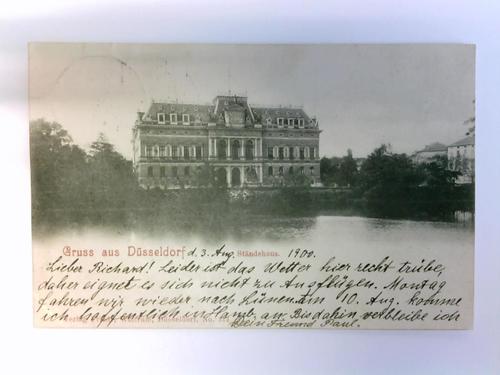 Gruss aus Düsseldorf d. 3. Aug. Ständehaus. 1900.
Lieber Richard! Leider ist das Wetter hier recht trübe,
daher eignet es sich nicht zu Ausflügen. Montag
fahren wir wieder nach Lünen. Am 10. Aug. komme
ich hoffentlich in Urlaub an. Bis dahin verbleibe ich
Düsseldorf, No.
Dein Freund Paul.